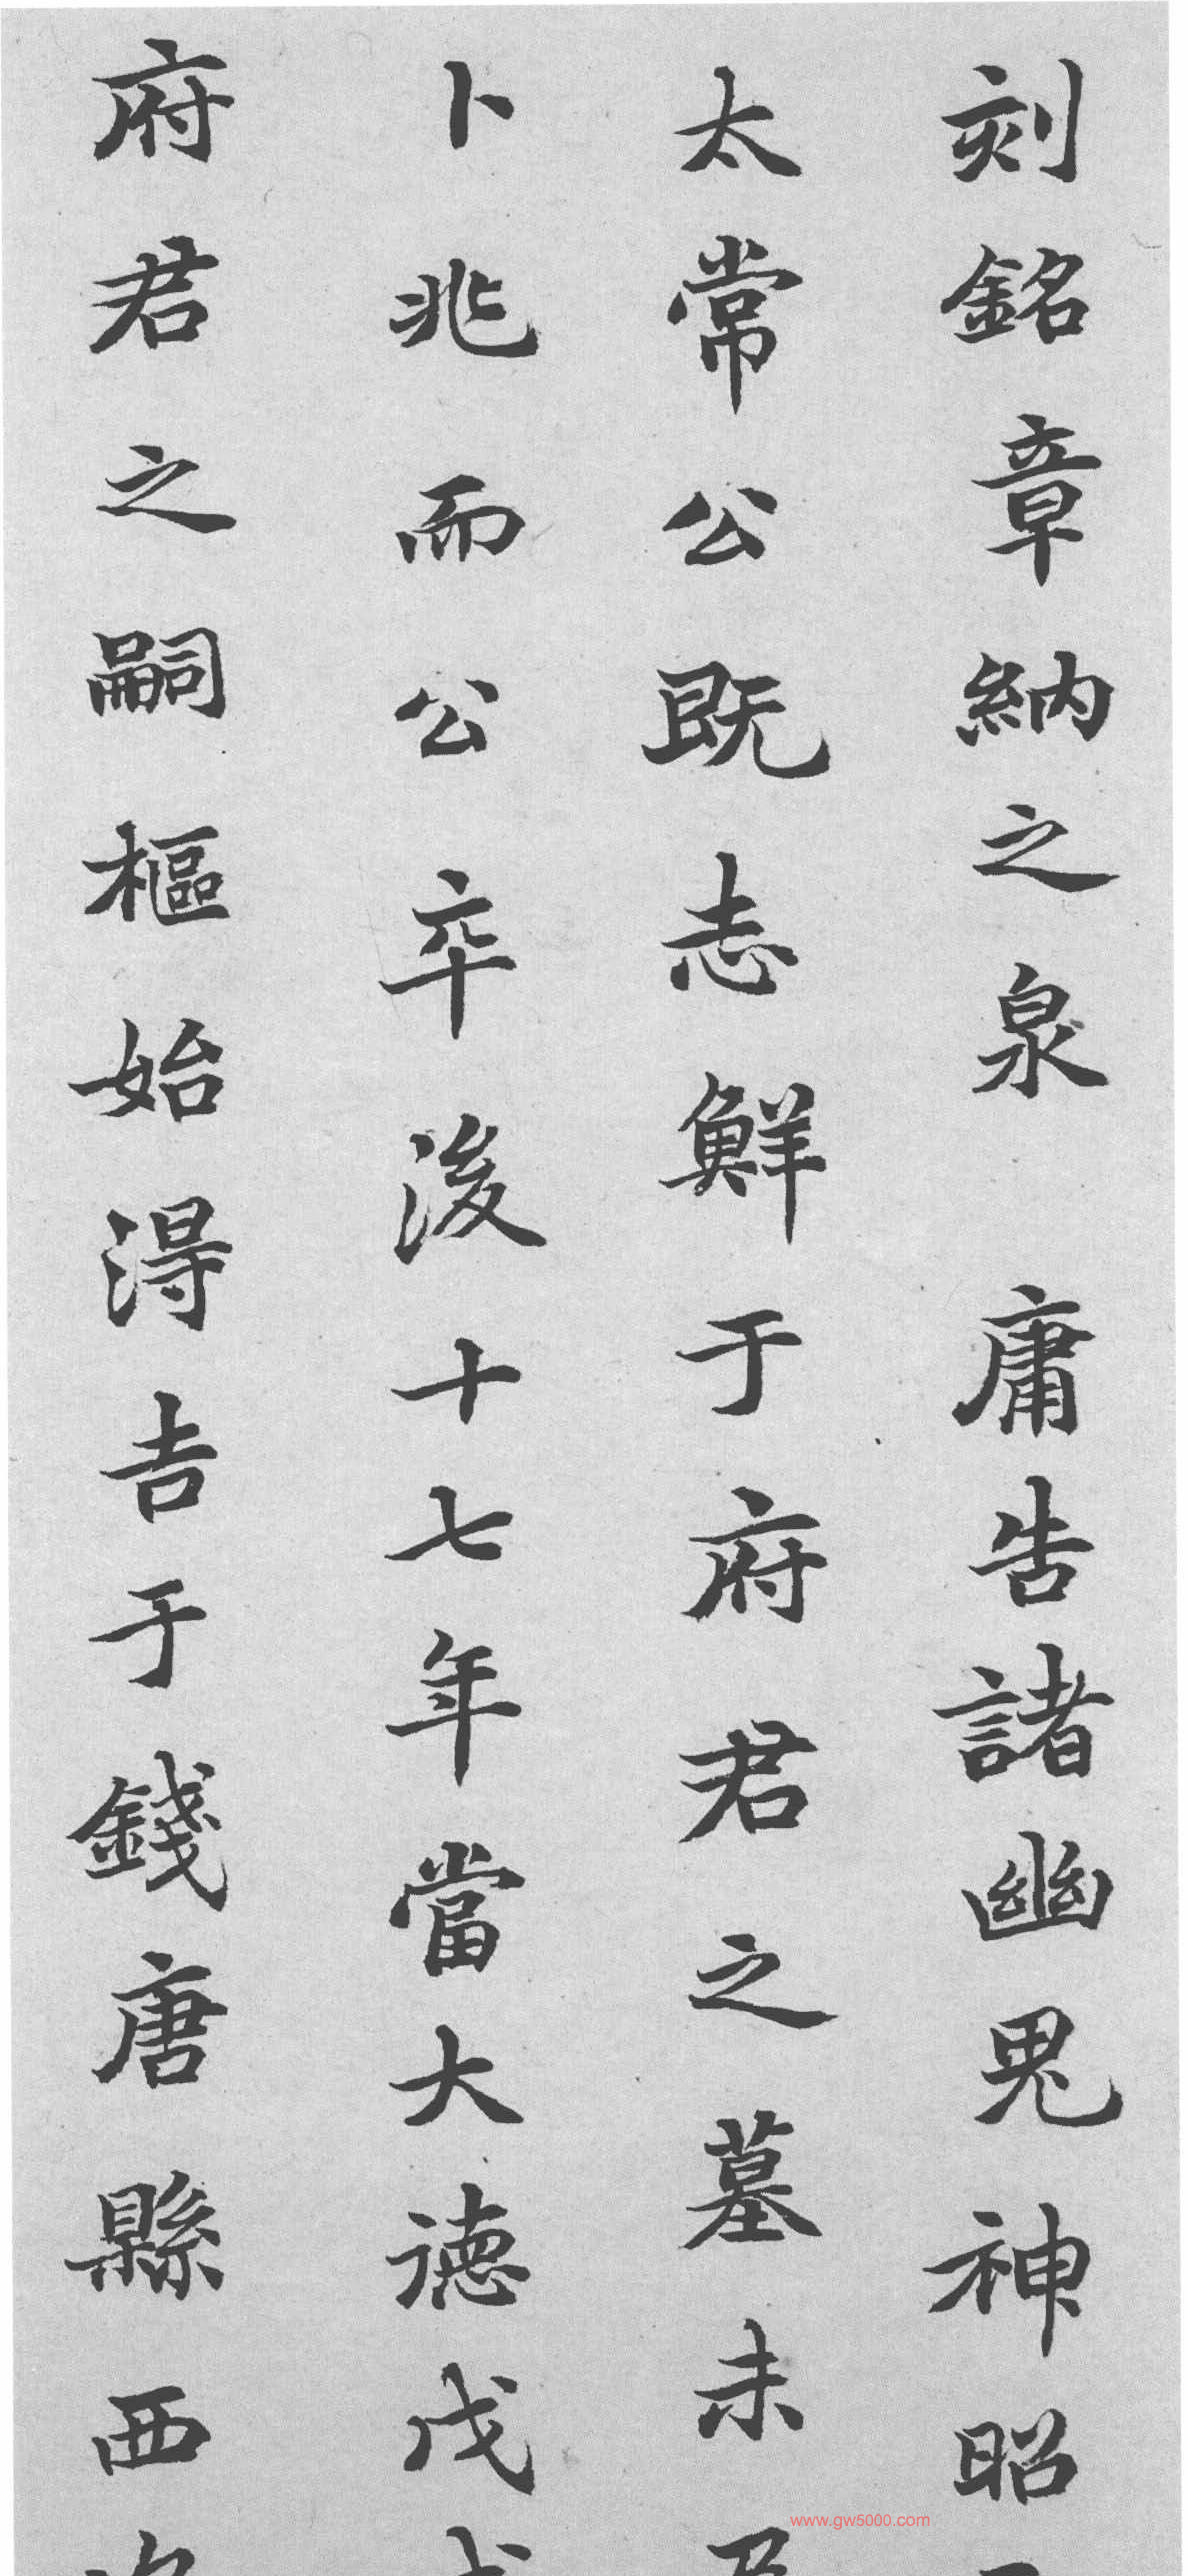 刻銘章納之泉　庸告諸幽鬼神昭
太常公既志鮮于府君之墓未
卜兆而公卒後十七年當大德戊
府君之嗣樞始得吉于錢唐縣西
www.gw5000.com